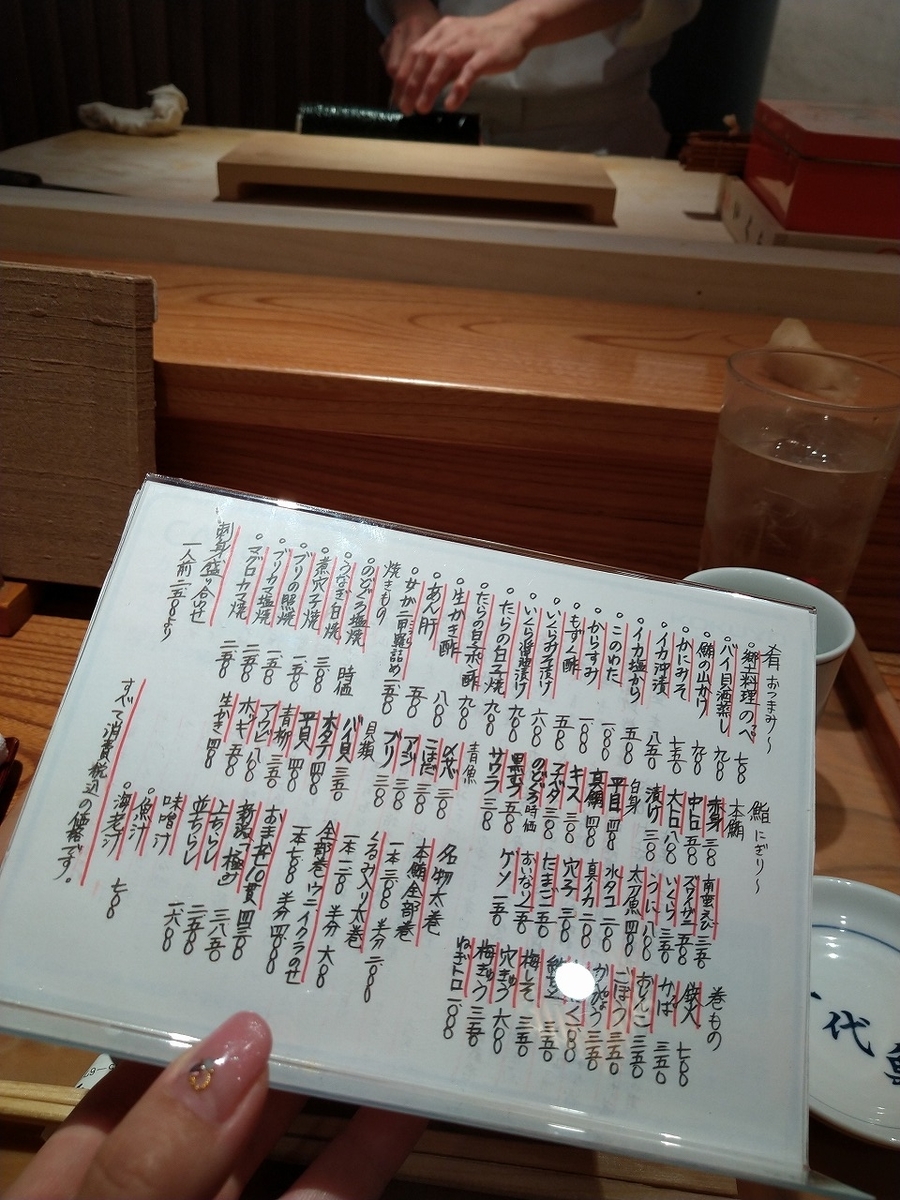 肴 おつまみ〜
郷土料理のっぺ 七〇〇
バイ貝酒蒸し 九〇〇
鮪の山かけ 九〇〇
かにみそ 七五〇
イカ沖漬 八五〇
イカ塩から 五〇〇
このわた
からすみ
もずく酢 五〇〇
いくらみそ漬け 六〇〇
いくら醤油漬け 九〇〇
たらの白子焼 九〇〇
たらの白子ポン酢 九〇〇
生かき酢 八〇〇
あん肝 五〇〇
焼きもの
のどぐろ塩焼 時価
うなぎ白焼
煮穴子焼 三〇〇
ブリの照焼 一五〇〇
ブリカマ塩焼 一五〇〇
マグロカマ焼
刺身盛り合わせ
一人前 二五〇〇より
鮨 にぎり〜
本鮪
赤身 三五〇
中トロ 五〇〇
大トロ 八〇〇
漬け 三〇〇
白身
平目 四〇〇
真鯛 四〇〇
キス 三〇〇
のどぐろ 時価
黒ムツ 五〇〇
サワラ 三〇〇
青魚
〆サバ 三〇〇
こはだ 三〇〇
アジ 三〇〇
ブリ 三〇〇
貝類
バイ貝 三五〇
ホタテ 四〇〇
平貝 四〇〇
青柳 三五〇
アワビ 八〇〇
ホッキ 五〇〇
生がき 四〇〇
南蛮えび 三五〇
ズワイガニ 五〇〇
いくら 五〇〇
うに 八〇〇
太刀魚 四〇〇
水タコ 二〇〇
真イカ 二〇〇
穴子 三〇〇
たまご 一五〇
おいなり 一五〇
ゲソ 一五〇
名物太巻
本鮪全部巻
くるみ入り太巻
全部巻ウニイクラのせ
おまかせ10貫 四三〇〇
新潟「極み」 四三〇〇
上ちらし 三八五〇
並ちらし 二五〇〇
味噌汁
魚汁
海老汁 七〇〇
巻もの
鉄火 七〇〇
かっぱ 三五〇
おしんこ 三五〇
ごぼう 三五〇
かんぴょう 三五〇
梅しそ 三五〇
穴きゅう 六〇〇
梅きゅう 三五〇
ねぎトロ 一〇〇〇
すべて消費税込の価格です。
代